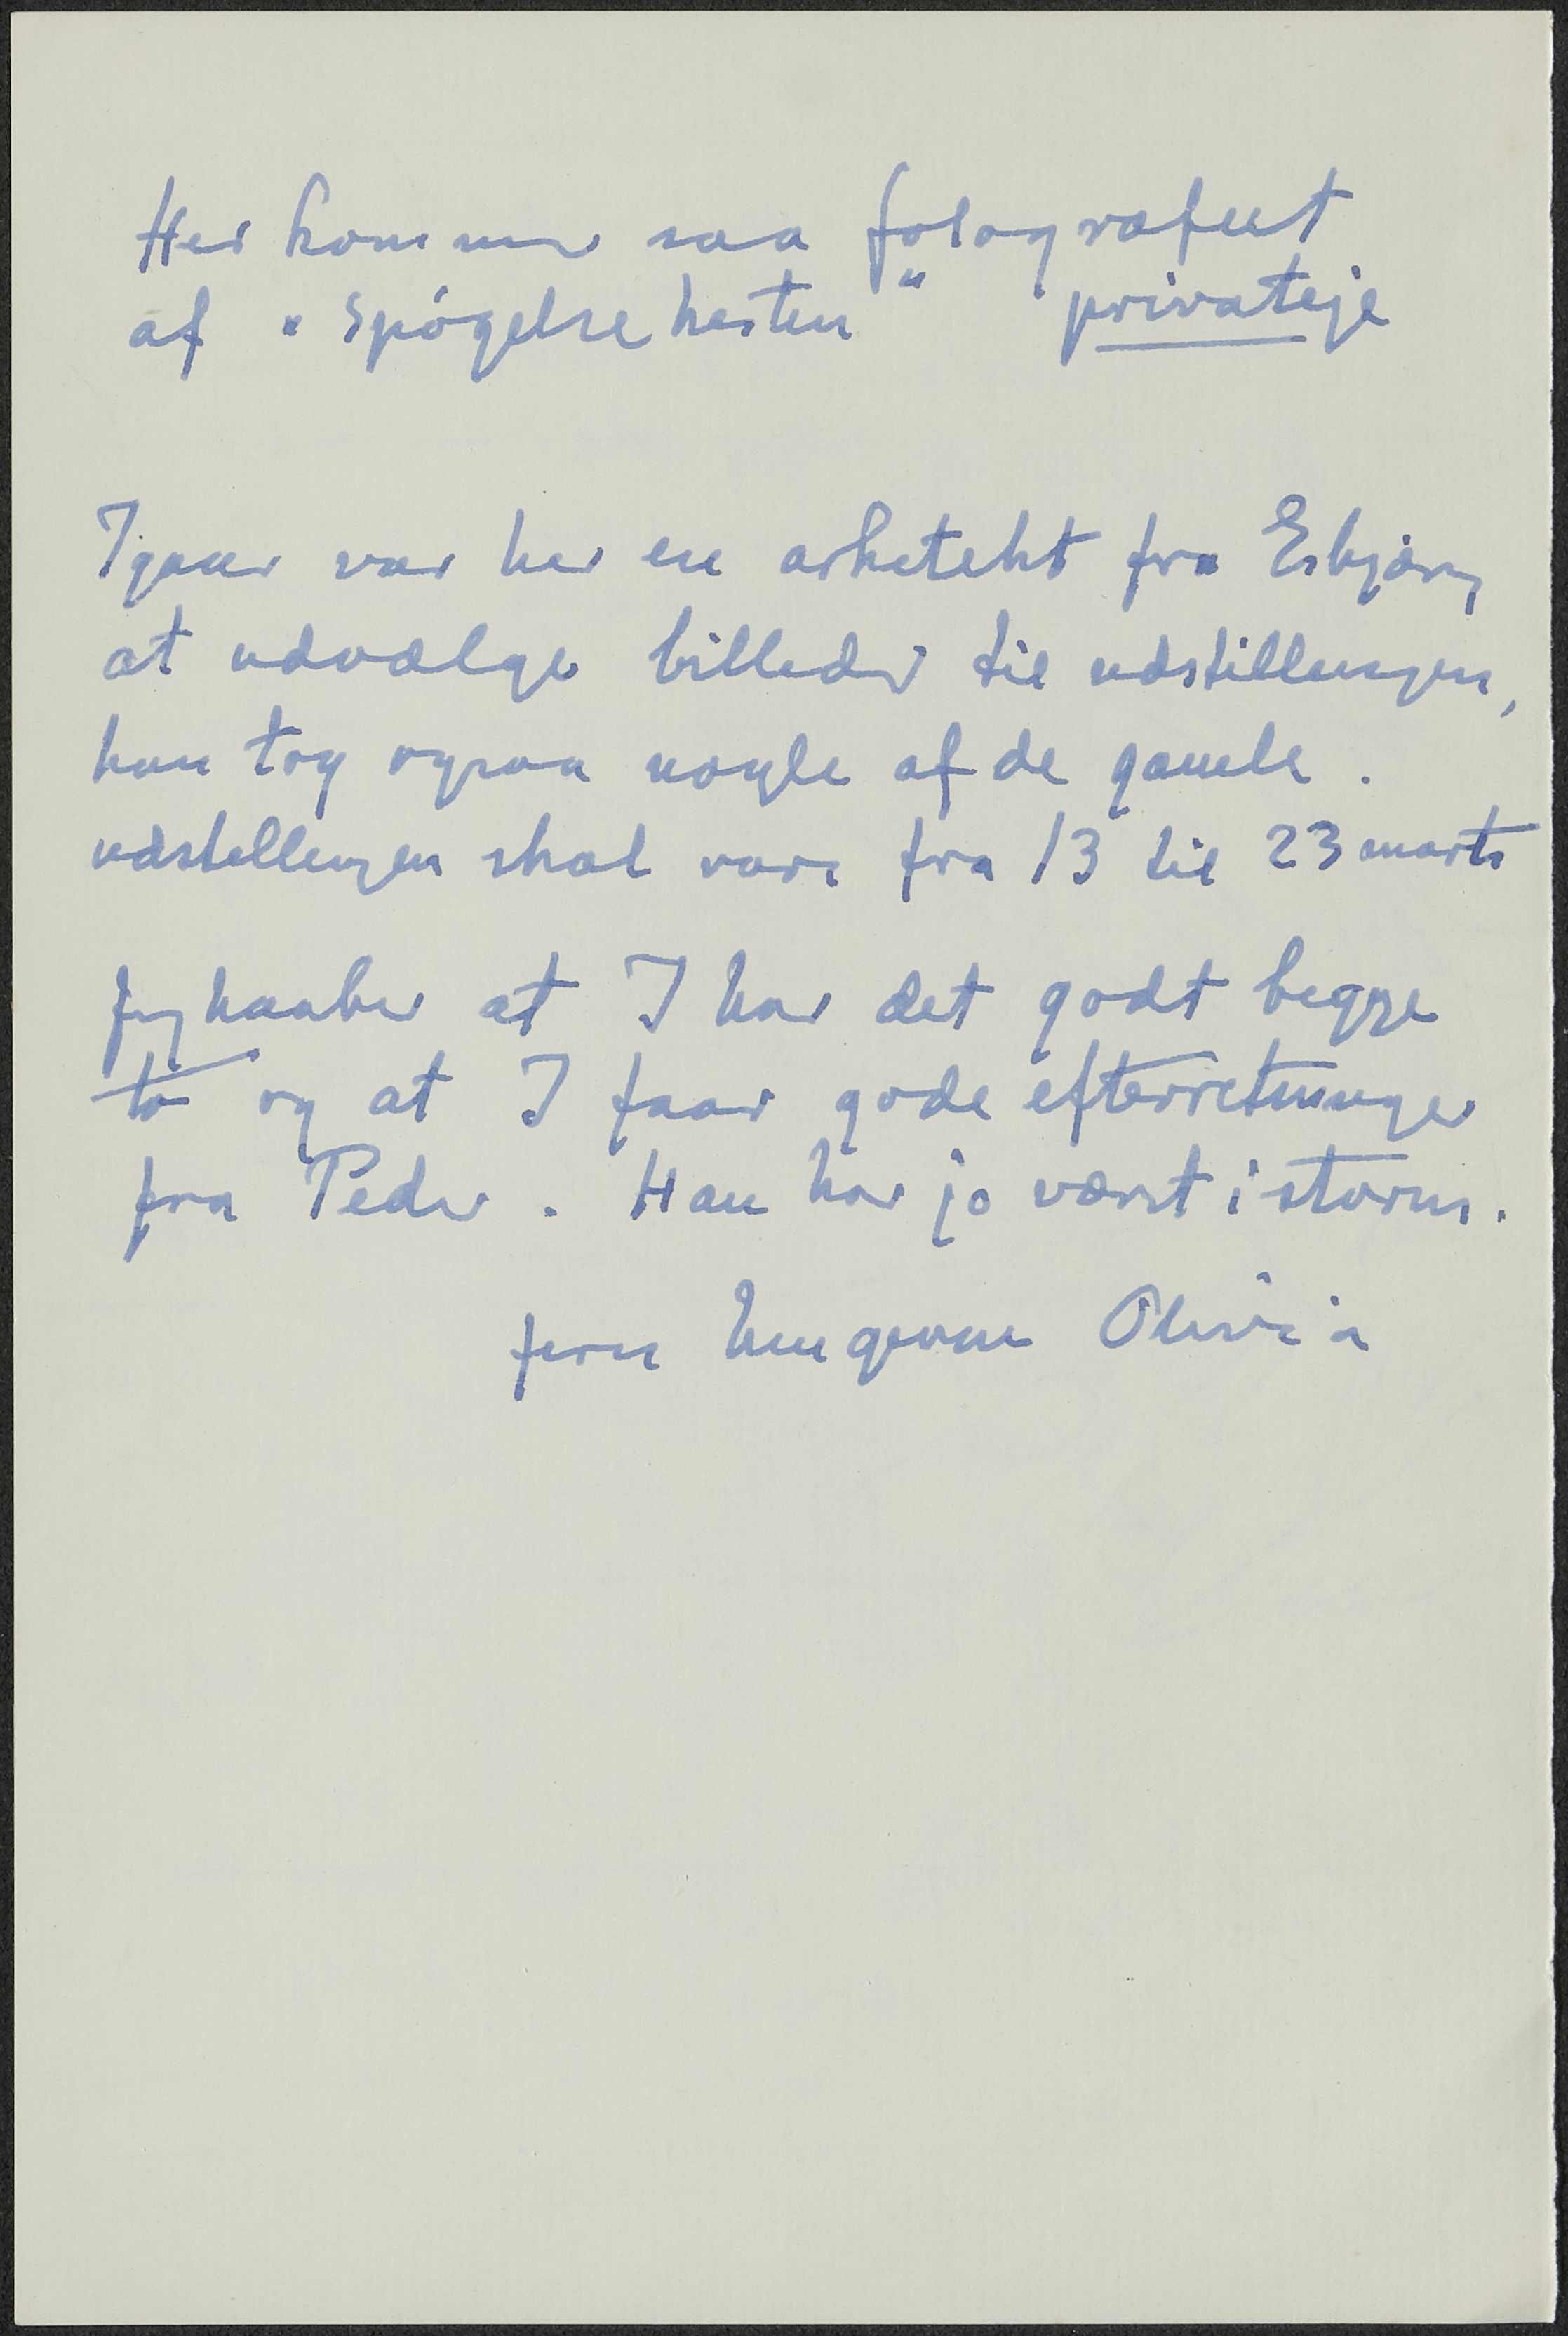 Her kommer saa fotografiet
af "Spøgelsehesten" privateje
Igaar var her en arkitekt fra Esbjerg
at udvælge billeder til udstillingen,
han tog ogsaa nogle af de gamle.
udstillingen skal vare fra 13 til 23 marts
Jeg haaber at I har det godt begge
to og at I faar gode efterretninger
fra Peder. Han har jo været i storm.
Olivia